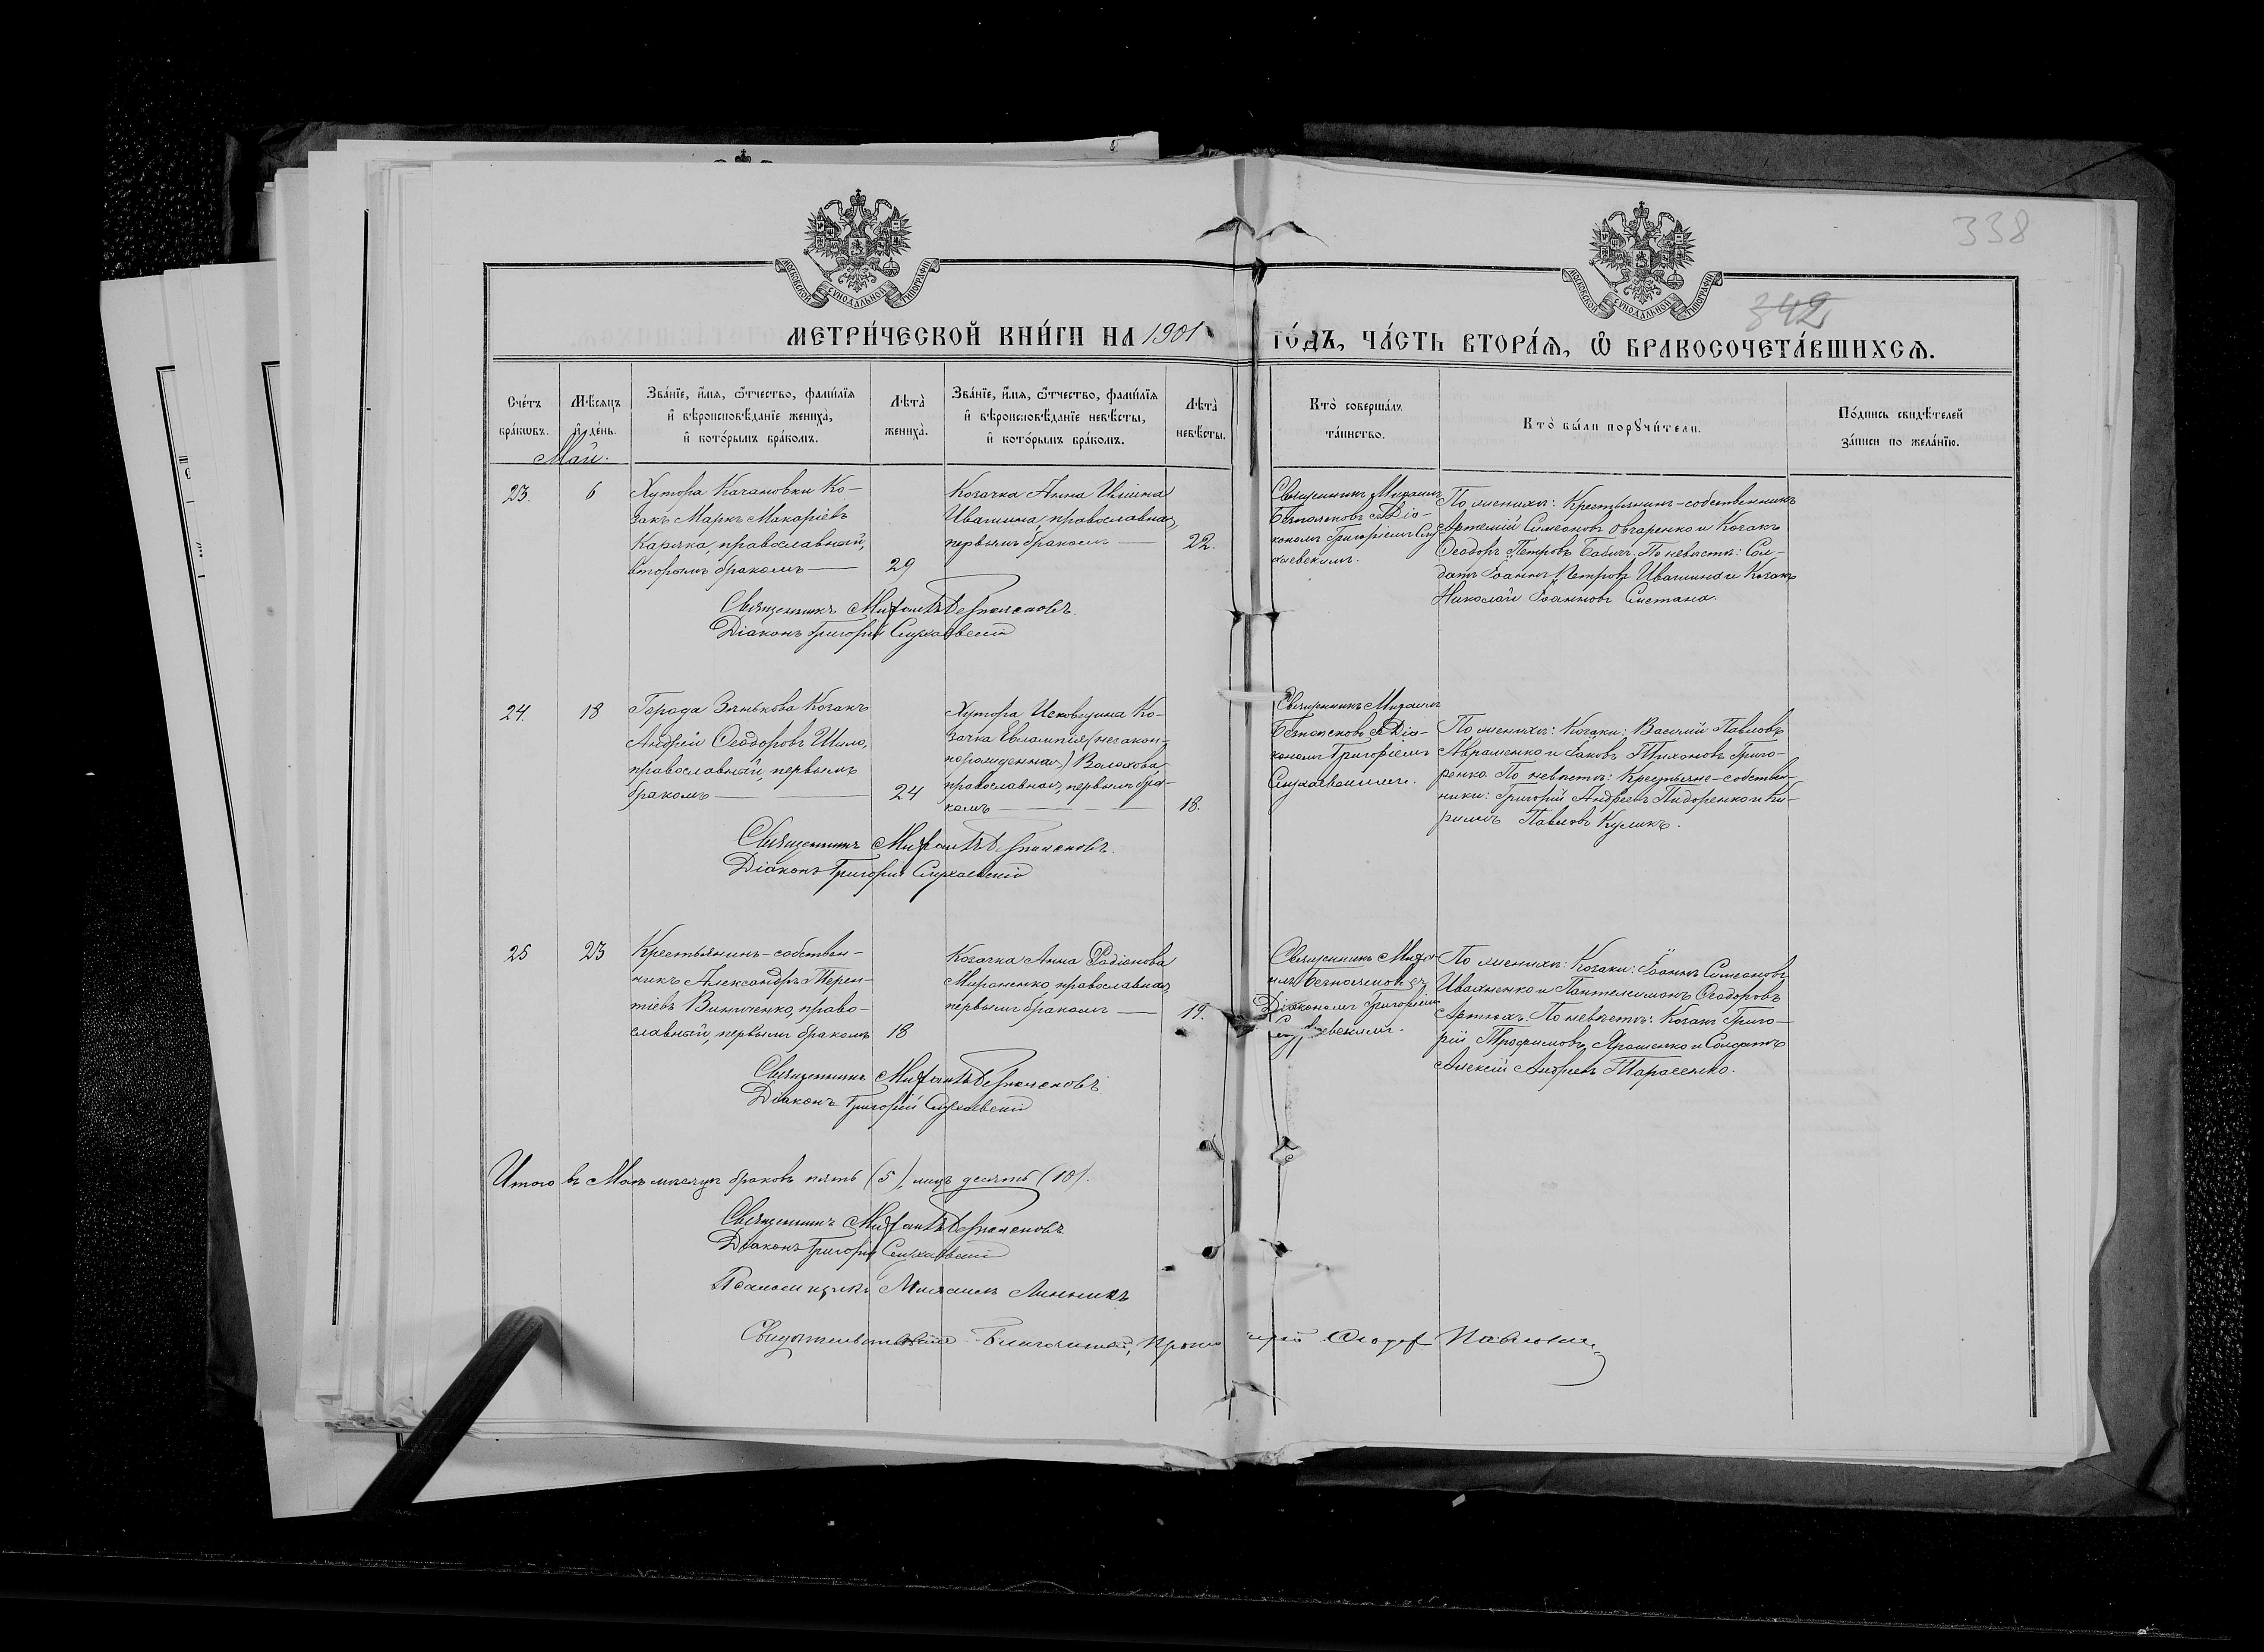 338
342
МОСКОВСКОЙ СУНОДАЛЬНОЙ ТИПОГРАФІИ
МОСКОВСКОЙ СУНОДАЛЬНОЙ ТИПОГРАФІИ
МЕТРИ́ЧЕСКОЙ КНИ́ГИ НА 1901 ГО́ДЪ, ЧА́СТЬ ВТОРА́Ѧ, Ѽ БРАКОСОЧЕТА́ВШИХСѦ.
Сче́тъ бра́кѡвъ.
Мѣсѧцъ и҆ де́нь.
Зва́нїе, и҆́мѧ, ѻ҆́тчество, фами́лїѧ
и҆ вѣроисповѣ́данїе жениха̀,
и҆ кото́рымъ бра́комъ.
Лѣта̀ жениха̀.
Зва́нїе, и҆́мѧ, ѻ҆́тчество, фами́лїѧ
и҆ вѣроисповѣ́данїе невѣ́сты,
и҆ кото́рымъ бра́комъ.
Лѣта̀ невѣ́сты.
Кто̀ соверша́лъ
та́инство.
Кто̀ бы́ли порꙋчи́тели.
По́дпись свидѣ́телей
за́писи по жела́нїю.
Май.
23.
6
Хутора Качановки Ко-
закъ Маркъ Макаріевъ
Карячка, православный,
вторымъ бракомъ
29
Козачка Анна Ильина
Ивашина, православная,
первымъ бракомъ
22.
Священникъ Михаилъ
Безпалековъ съ Діа-
кономъ Григоріемъ Слу-
хаевскимъ.
По женихѣ: Крестьянинъ-собственникъ
Артемій Симеоновъ Овчаренко и Козакъ
Ѳеодоръ Петровъ Бабичъ. По невѣстѣ: Сол-
датъ Іоаннъ Петровъ Ивашина и Козакъ
Николай Іоанновъ Сметана.
Священникъ Михаилъ Безпалековъ
Діаконъ Григорій Слухаевскій
24.
18
Города Зѣнькова Козакъ
Андрей Ѳеодоровъ Шило,
православный, первымъ
бракомъ
24
Хутора Исковщина Ко-
зачка Евлампія (незакон-
норожденная) Волохова
православная, первымъ бра-
комъ
18.
Священникъ Михаилъ
Безпалековъ съ Діа-
кономъ Григоріемъ
Слухаевскимъ.
По женихѣ: Козаки: Василій Павловъ
Авраменко и Іаковъ Тихоновъ Григо-
ренко. По невѣстѣ: Крестьяне-собствен-
ники: Григорій Андреевъ Пидоренко и Ки-
риллъ Павловъ Куликъ.
Священникъ Михаилъ Безпалековъ
Діаконъ Григорій Слухаевскій
25
23
Крестьянинъ-собствен-
никъ Александръ Терен-
тіевъ Винниченко, право-
славный, первымъ бракомъ
18
Козачка Анна Родіонова
Мироненко православная,
первымъ бракомъ
19.
Священникъ Миха-
илъ Безпалековъ съ
Діакономъ Григоріемъ
По женихѣ: Козаки: Іоаннъ Симеоновъ
Ивахненко и Пантелеимонъ Ѳеодоровъ
Артюхъ. По невѣстѣ: Козакъ Григо-
рій Трофимовъ Ярошенко и Солдатъ
Алексій Андреевъ Тарасенко.
Священникъ Михаилъ Безпалековъ
Діаконъ Григорій Слухаевскій
Итого въ Маѣ мѣсяцѣ браковъ пять (5), лицъ десять (10).
Священникъ Михаилъ Безпалековъ
Діаконъ Григорій Слухаевскій
Псаломщикъ Михаилъ Линникъ
Благочинный, Протоіерей Ѳеодоръ